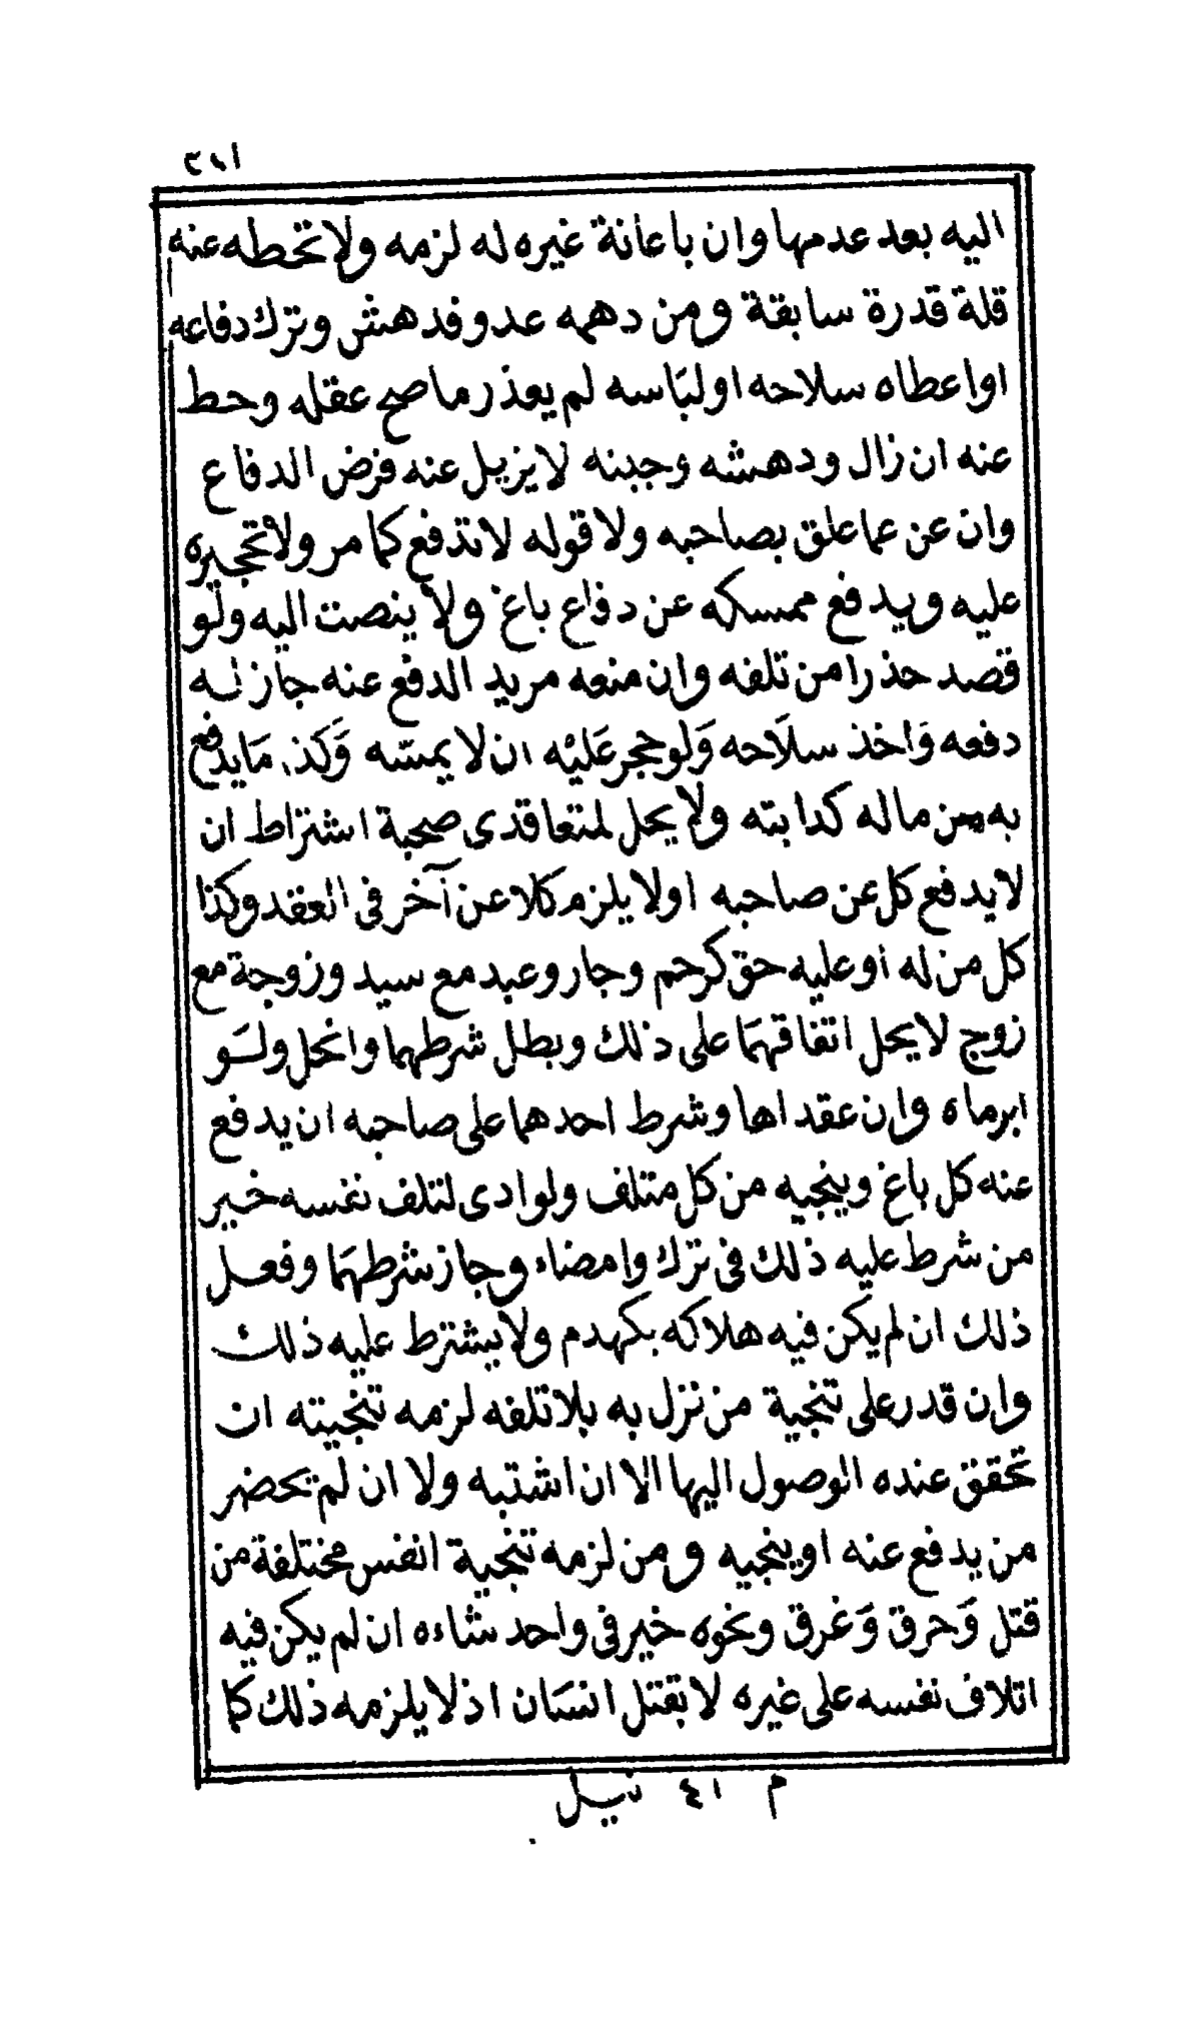 اليه بعد عدمها وان باعانة غيره له لزمه ولا تحطه عنه
قلة قدرة سابقة ومن دهمه عدو فدهش وترك دفاعه
او اعطاه سلاحه او لباسه لم يعذر ما صح عقله وحط
عنه ان زال ودهشه وجبنه لا يزيل عنه فرض الدفاع
وان عن عما علق بصاحبه ولا قوله لا تدفع كما مر ولا تحجيره
عليه ويدفع ممسكه عن دفاع باغ ولا ينصت اليه ولو
قصد حذرا من تلفه وان منعه مريد الدفع عنه جاز له
دفعه وَاخذ سلَاحه وَلو حجر عَليْه ان لا يمسّه وَكَذا مَا يدفع
به من ماله كدابته ولا يحل لمتعاقدى صحبة اشتراط ان
لا يدفع كل عن صاحبه او لا يلزم كلا عن آخر فى العقد وكذا
كل من له او عليه حق كرحم وجار وعبد مع سيد وزوجة مع
زوج لا يحل اتفاقهمَا على ذلك وبطل شرطهما وانحل ولَو
ابرماه وان عقداها وشرط احدهما على صاحبه ان يدفع
عنه كل باغ وينجيه من كل متلف ولو ادى لتلف نفسه خير
من شرط عليه ذلك فى ترك وامضاء وجاز شرطهمَا وفعل
ذلك ان لم يكن فيه هلاكه بكهدم ولا يشترط عليه ذلك
وان قدر على تنجية من نزل به بلا تلفه لزمه تنجيته ان
تحقق عنده الوصول اليها الا ان اشتبه ولا ان لم يحضر
من يدفع عنه او ينجيه ومن لزمه تنجية انفس مختلفة من
قتل وَحرق وَغرق ونحوه خير فى واحد شاءه ان لم يكن فيه
اتلاف نفسه على غيره لا بقتل انسَان اذ لا يلزمه ذلك كما
م ٤١ نيل